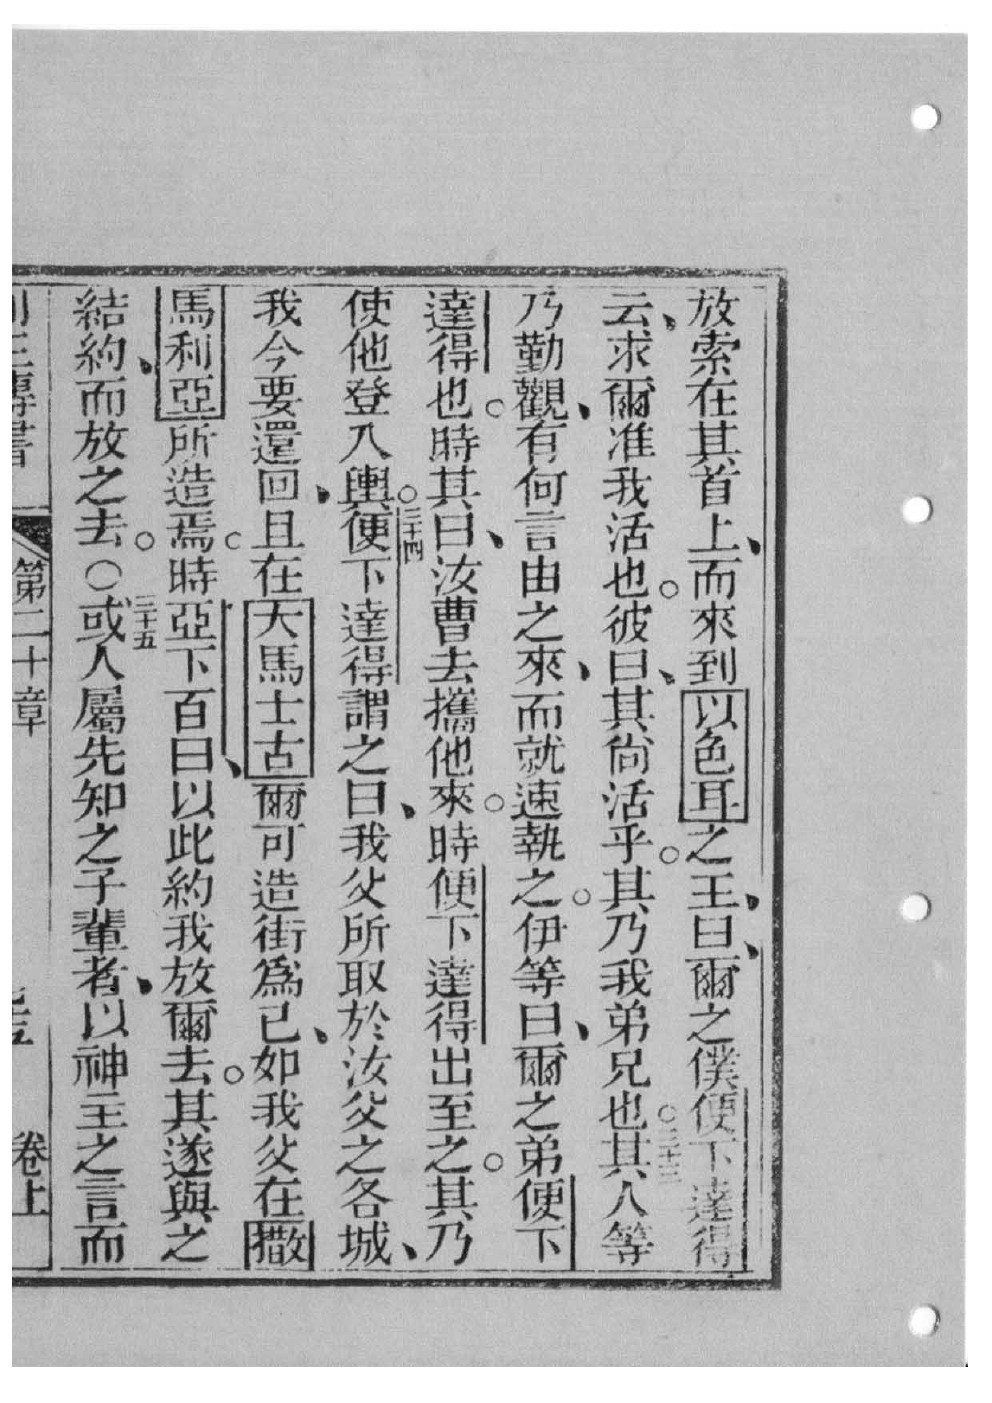 放索在其首上、而來到以色耳之王、曰、爾之僕便下達得
云、求爾准我活也。彼曰、其尚活乎。其乃我弟兄也。三十三其人等
乃勤觀、有何言由之來、而就速執之。伊等曰、爾之弟便下
達得也。時其曰、汝曹去攜他來。時便下達得出至之。其乃
使他登入輿。三十四便下達得謂之曰、我父所取於汝父之各城、
我今要還回、且在大馬士古爾可造街為已、如我父在撒
馬利亞所造焉。時亞下百曰、以此約我放爾去。其遂與之
結約、而放之去。〇三十五或人屬先知之子輩者、以神主之言而
第二十章
卷上